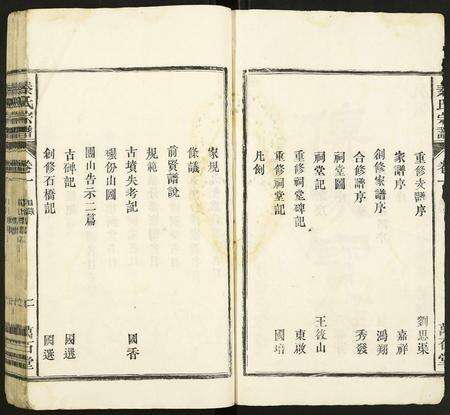 秦氏宗譜
重修支譜序 劉思渠
家譜序 嘉祥
創修家譜序 鴻翔
合修譜序 秀發
祠堂圖
祠堂記 王筱山
重修祠堂碑記 東啟
重修祠堂記 國培
凡例
萬石堂
家規
條議
前賢譜說
規範
墳份山圖
古墳失考記 國香
團山告示二篇
古碑記 國選
創修石橋記 國選
秦氏宗譜
萬石堂